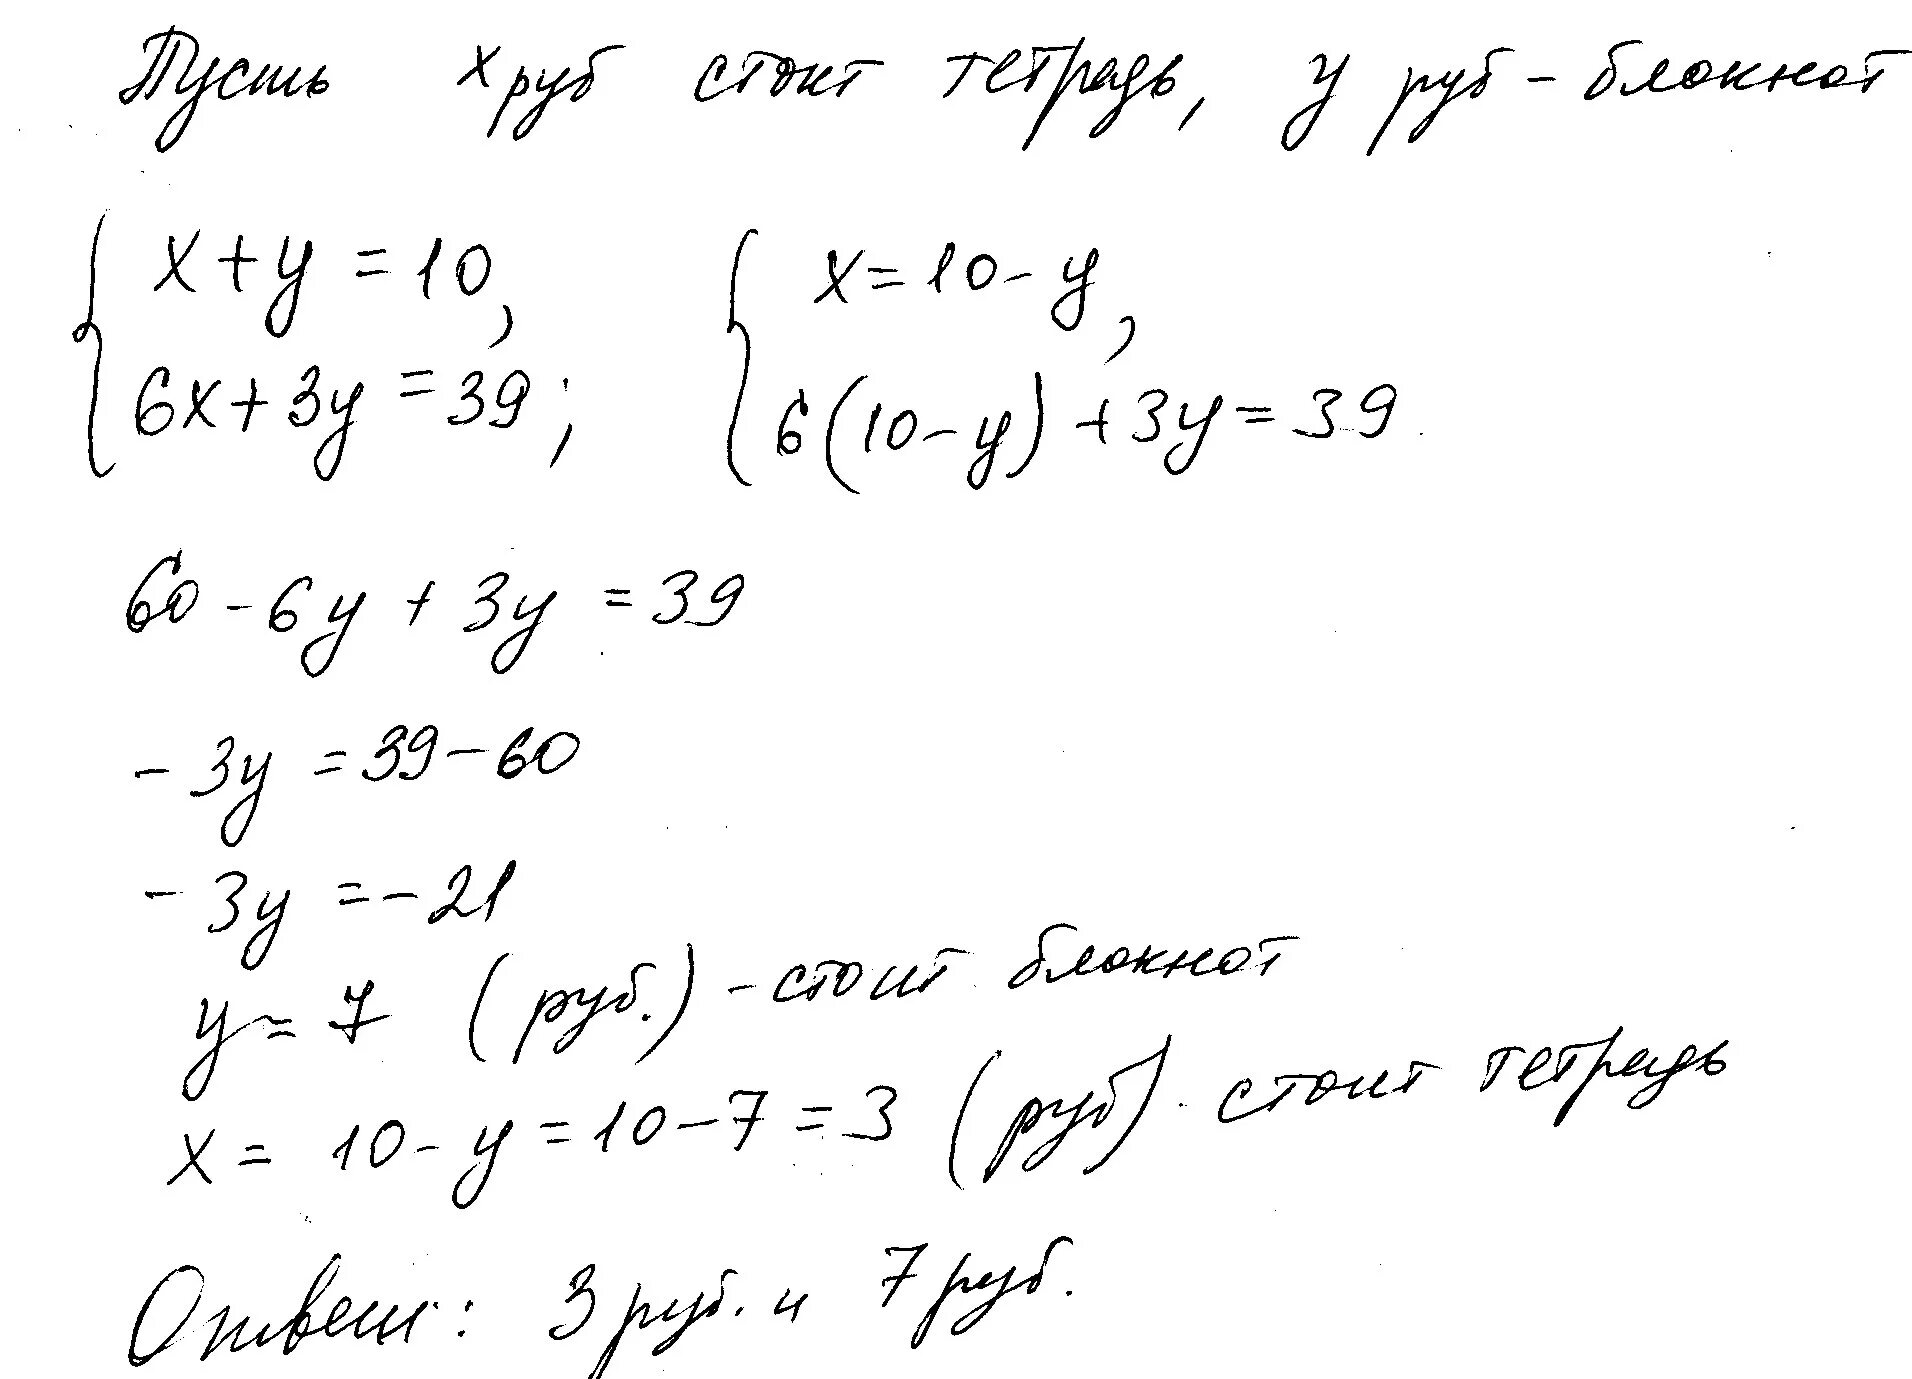 Пусть x руб стоит тетрадь, y руб - блокнот
x + y = 10,
6x + 3y = 39;
x = 10 - y,
6(10 - y) + 3y = 39
60 - 6y + 3y = 39
- 3y = 39 - 60
- 3y = - 21
y = 7 (руб.) - стоит блокнот
x = 10 - y = 10 - 7 = 3 (руб) стоит тетрадь
Ответ: 3 руб. и 7 руб.